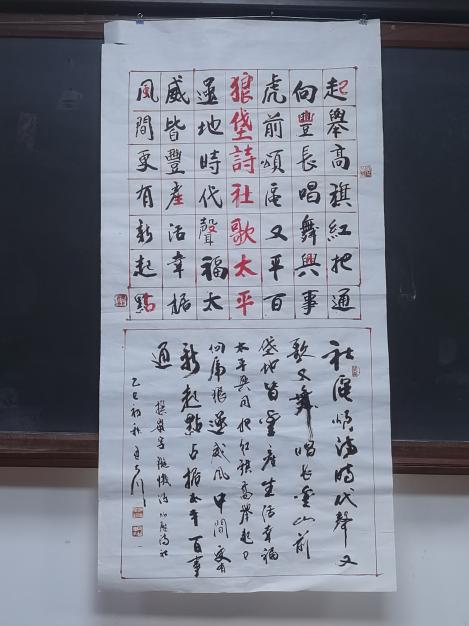 起舉高旗紅把通
向豐長唱舞興事
虎前頌區又平百
狼垡詩社歌太平
逞地時代聲福太
威皆豐產活幸据
風間更有新起點
社區頌詩時代聲又
歌又舞唱長豐山前
垡地皆豐產生活幸福
太平興同把紅旗高舉起
向虎狼逞威風中間更有
新起點占据太平百事
通
詩社
乙巳初秋